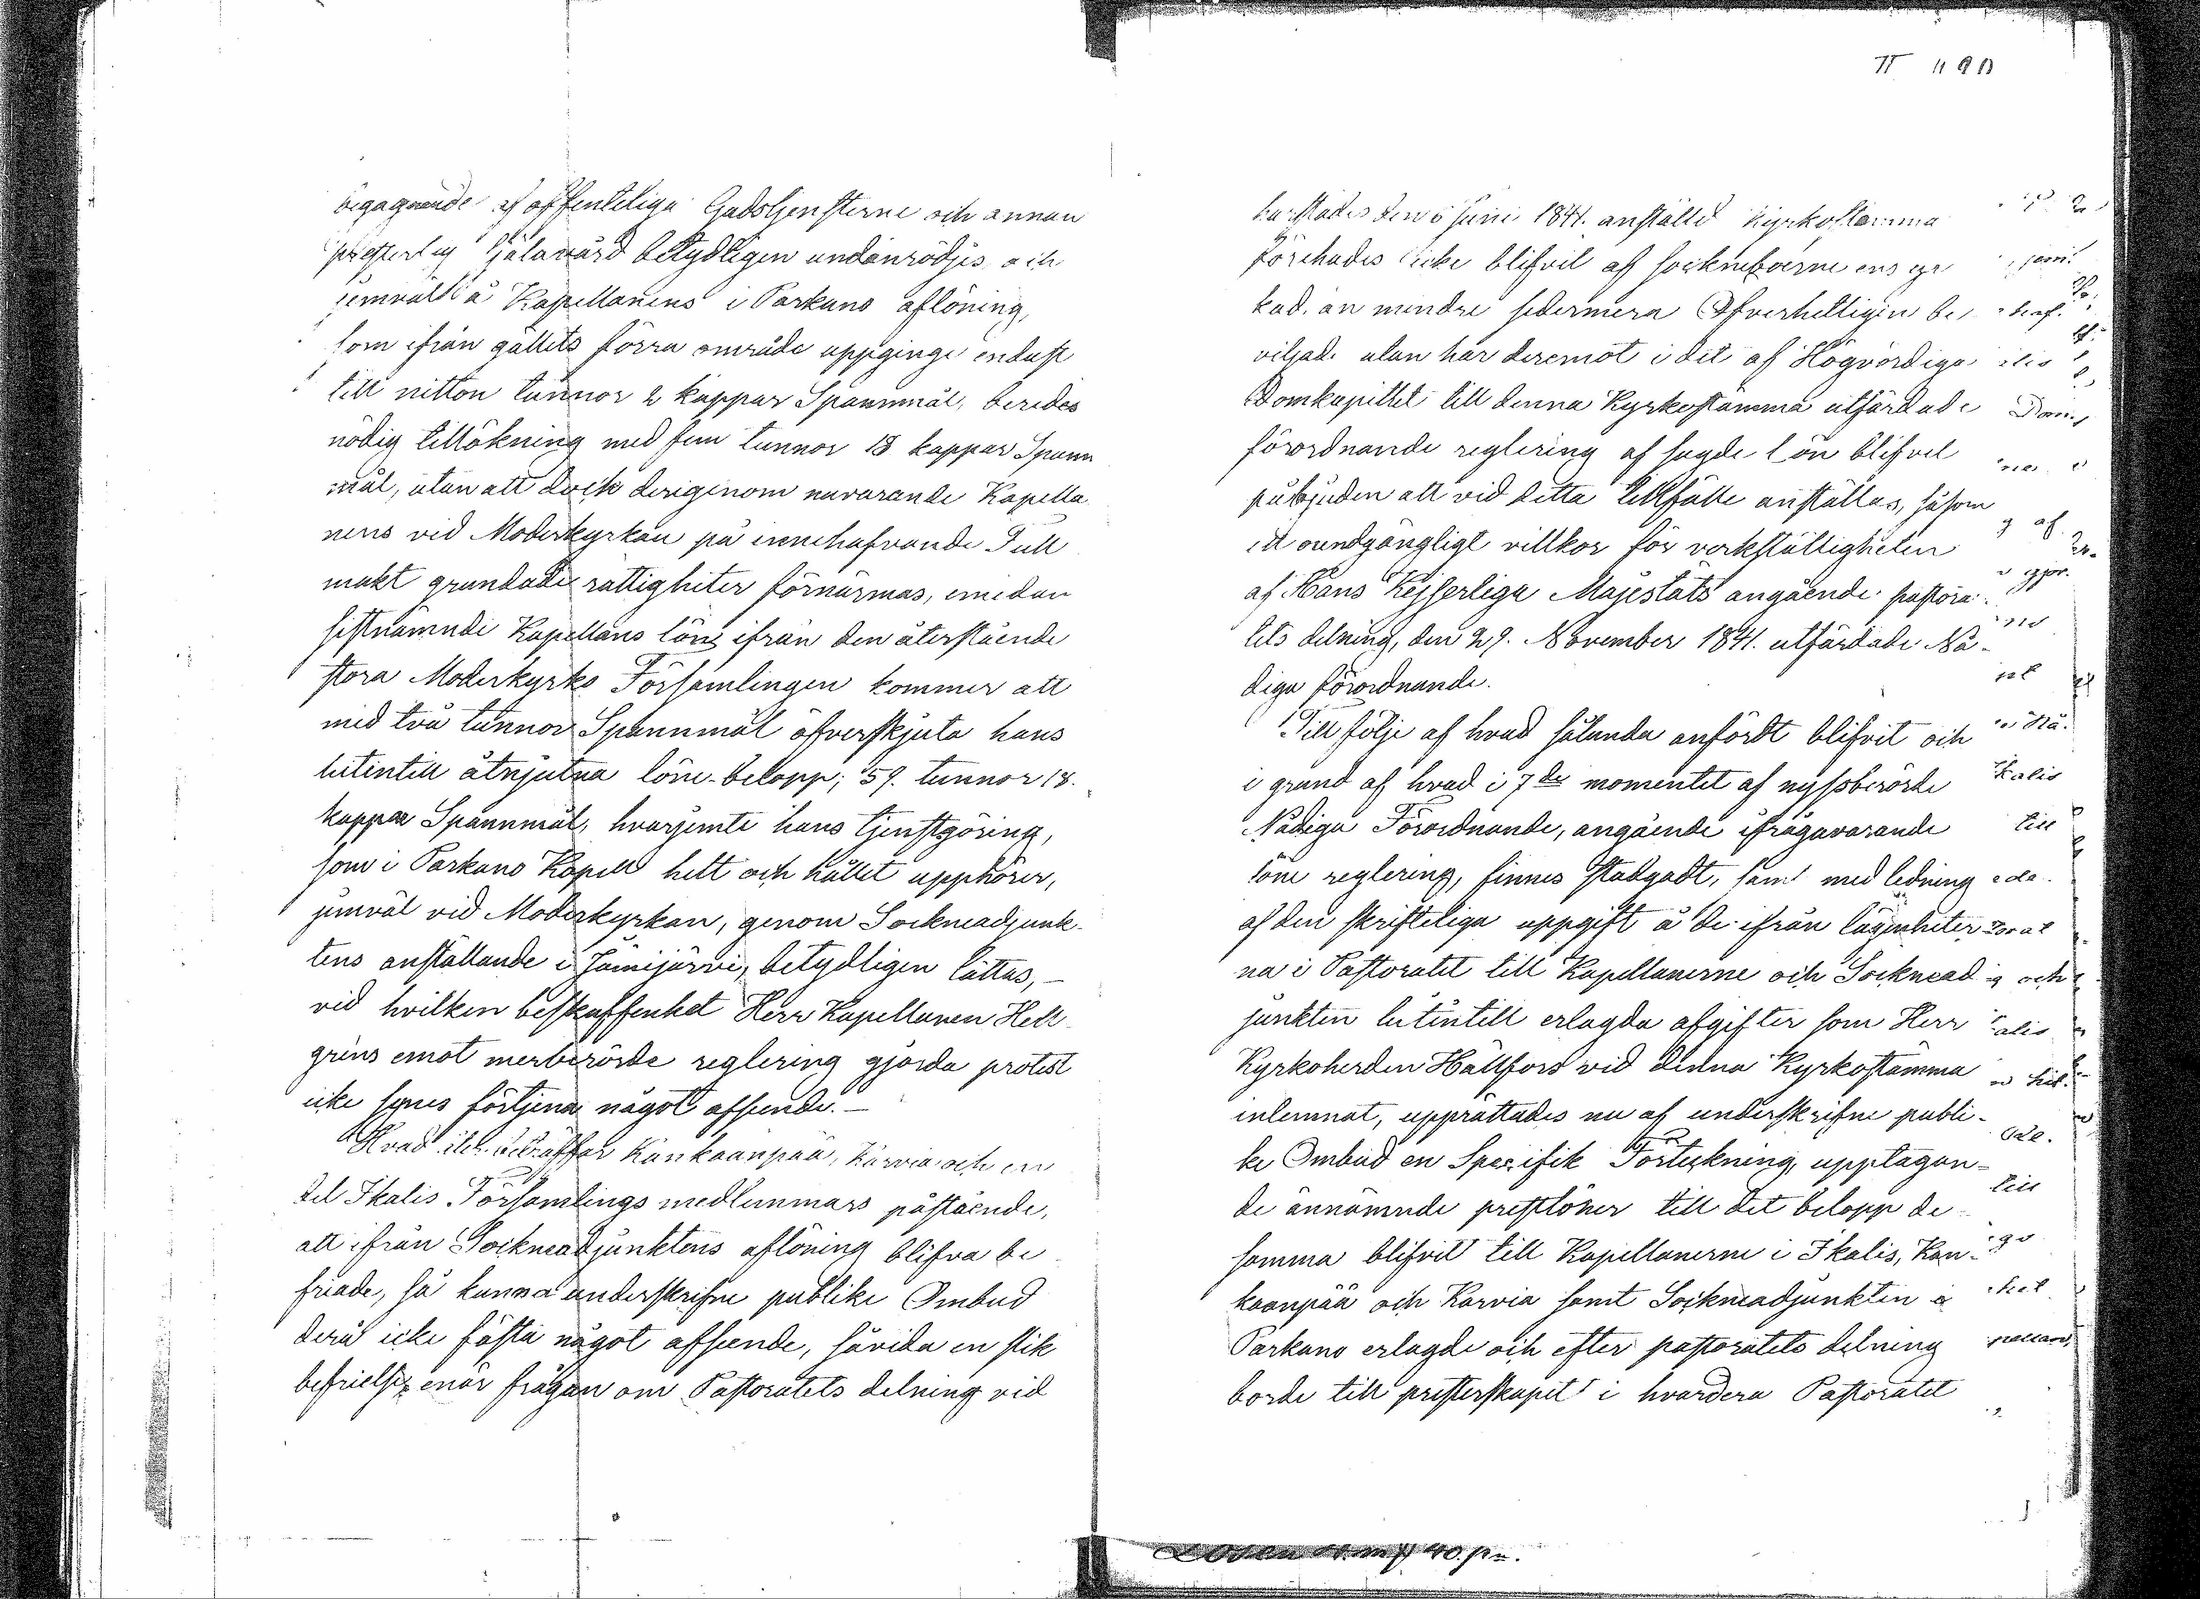 begagnande af offentliga Gudstjensterne och annan
presterlig Själavård betydligen undanrödjes och
jemväl å Kapellanens i Parkano aflöning,
som ifrån gällets förra område uppginge endast
till nitton tunnor 2 kappar Spannmål, beredes
nödig tillökning med fem tunnor 18 kappar Spann
mål, utan att dock derigenom nuvarande Kapella
nens vid Moderkyrkan på innehafvande Full
makt grundade rättigheter förnärmas, emedan
sistnämnde Kapellans lön ifrån den återstående
stora Moderkyrko Församlingen kommer att
med två tunnor Spannmål öfverskjuta hans
hitintill åtnjutna löne-belopp; 59. tunnor 18.
kappar Spannmål, hvarjemte hans tjenstgöring,
som i Parkano Kapell helt och hållet upphörer,
jemväl vid Moderkyrkan, genom Sockneadjunk-
tens anställande i Jämijärvi, betydligen lättas,-
vid hvilken beskaffenhet Herr Kapellanen Hell-
grens emot merberörde reglering gjorda protest
icke synes förtjena något afseende.-
Hvad åter beträffar Kankaanpää, Karvia och en
del Ikalis Församlings medlemmars påstående,
att ifrån Sockneadjunktens aflöning blifva be
friade, så kunna underskrifne publike Ombud
derå icke fästa något afseende, såvida en slik
befrielse, enär frågan om Pastoratets delning vid
II
Juni 1841. anställd Kyrkostämma
förehades icke blifvit af sockneboerne ens
kad, än mindre sedermera Öfverheltligen be
viljad, utan har deremot i det af Högvördiga
Domkapitlet till denna Kyrkostämma utfärdade
förordnande reglering af sagde lön blifvit
påbjuden att vid detta tillfälle anställas, såsom
ett oundgängligt villkor för verkställigheten
af Hans Kejserliga Majestäts angående pastora-
tets delning, den 29. November 1841. utfärdade Nå-
diga förordnande.
Till följe af hvad sålunda anfördt blifvit och
i grund af hvad i 7de momentet af nyssberörde
Nådiga Förordnande, angående ifrågavarande
löne reglering, finnes stadgadt, samt med ledning
af den skriftliga uppgift å de ifrån lägenheter
na i Pastoratet till Kapellanerne och Socknead
junkten hitintill erlagda afgifter som Herr
Kyrkoherden Hällfors vid denna Kyrkostämma
inlemnat, upprättades nu af underskrifne publi-
ke Ombud en Specifik Förteckning, upptagan-
de ännämnde prestlöner till det belopp de-
samma blifvit till Kapellanerne i Ikalis, Kan-
kaanpää och Karvia samt Sockneadjunkten i
Parkano erlagde och efter pastoratets delning
borde till presterskapet i hvardera Pastoratet
af
Kalis
till
och
till
40. p:n.